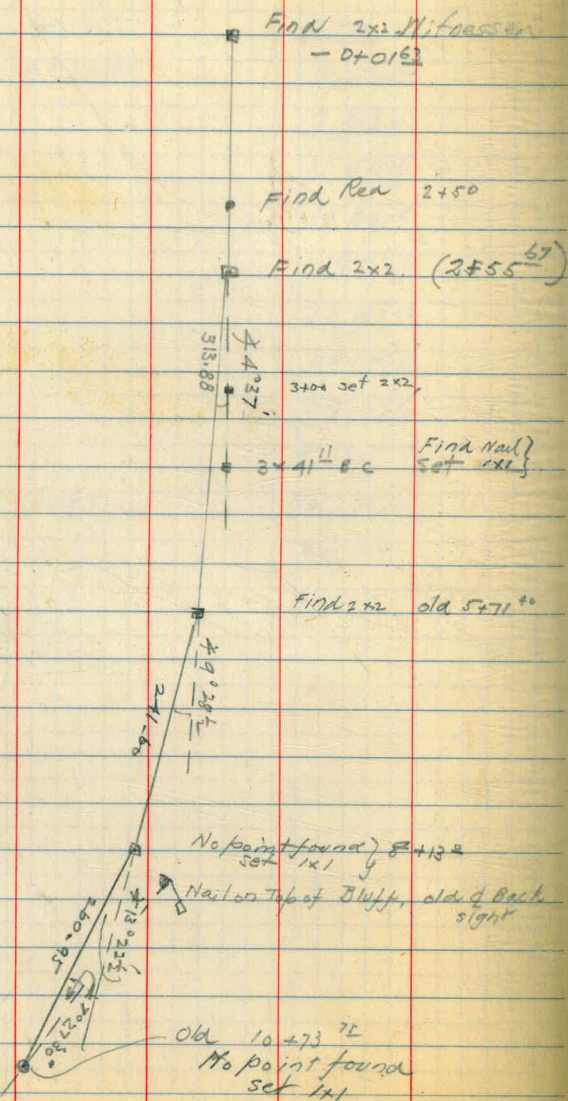 Find 2x2 Witnesses
- 0+01 63
Find Rea 2+50
Find 2x2. (2+55 67)
∡ 4°37'
313.88
3+00 set 2x2,
3+41 11 B C Find Nail}
set 1x1}
Find 2x2 old 5+71 46
∡ 9°28½
241.60
No point found } 8+13 2
set 1x1
Nail on Top of Bluff, old ¢ Back
sight
∡ 13°22½
260.95
7°27'30"
Old 10+73 75
No point found
set 1x1